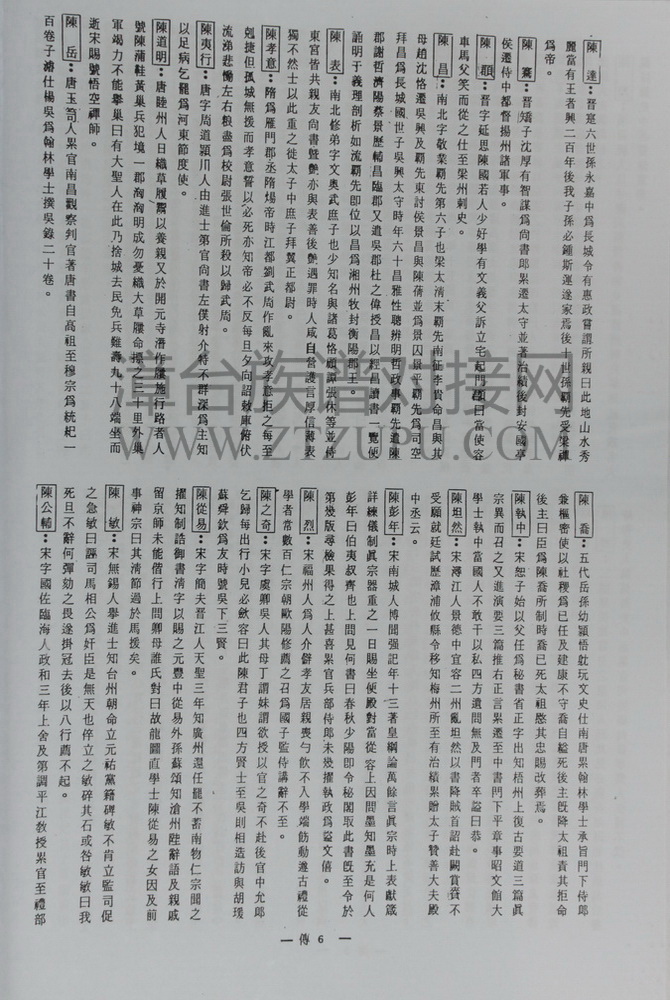 陳達：晉寔六世孫永嘉中為長城令有惠政嘗謂所親曰此地山水秀
麗當有王者興二百年後我子孫必鍾斯運遂家焉後十世孫霸先受梁禪
為帝。
陳騫：晉矯子沈厚有智謀為尚書郎累遷太守並著治績後封安國亭
侯遷侍中都督揚州諸軍事。
陳頵：晉字延思陳國若人少好學有文義父訴立宅起門頵曰當使容
車馬父笑而從之仕至梁州刺史。
陳昌：南北字敬業霸先第六子也梁太清末霸先南征李賁命昌與其
母趙沈恪還吳興及霸先東討侯景昌與陳蒨並為景囚景平霸先為司空
拜昌為長城國世子吳興太守時年六十昌雅性聰辨明哲政事霸先遣陳
郡謝哲濟陽蔡景歷輔昌臨郡又遣吳郡杜之偉授昌以經昌讀書一覽便
誦明于義理剖析如流霸先即位以昌為湘州牧封衡陽郡王。
陳表：南北修弟字文奧武庶子也少知名與諸葛恪顧譚張休等並侍
東宮皆共親友尚書暨艷亦與表善後艷遇罪時人咸自營護言厚信薄表
獨不然士以此重之徙太子中庶子拜翼正都尉。
陳孝意：隋為雁門郡丞隋煬帝時江都劉武周作亂來攻孝意拒之每至
剋捷但孤城無援而孝意誓以必死亦知帝必不反每旦夕向詔敕庫俯伏
流涕悲慟左右粮盡為校尉張世倫所殺以歸武周。
陳夷行：唐字周道潁川人由進士第官尚書左僕射介特不群深為主知
以足病乞罷為河東節度使。
陳道明：唐睦州人日織草履鬻以養親又於開元寺潛作履施行路者人
號陳蒲鞋黃巢兵犯境一郡洶洶明成勿憂織大草屨命掛之三十里外巢
軍竭力不能舉巢曰有大聖人在此乃捨城去民免兵難壽九十八端坐而
逝宋賜號悟空禪師。
陳岳：唐玉司人累官南昌觀察判官著唐書自高祖至穆宗為統紀一
百卷子濬仕楊吳為翰林學士撰吳錄二十卷。
陳喬：五代岳孫幼穎悟躭玩文史仕南唐累翰林學士承旨門下侍郎
兼樞密使以社稷為已任及建康不守喬自縊死後主旣降太祖責其拒命
後主曰臣為陳喬所制時喬已死太祖愍其忠賜改葬焉。
陳執中：宋恕子始以父任為秘書省正字出知梧州上復古要道三篇眞
宗異而召之又進演要三篇推右正言累遷至中書門下平章事昭文館大
學士執中當國人不敢干以私四方遺問無及門者卒謚曰恭。
陳坦然：宋潯江人景德中宜容二州亂坦然以書降賊首詔赴闕賞賚不
受願就廷試歷漳浦攸縣令移知梅州所至有治績累贈太子贊善大夫殿
中丞云。
陳彭年：宋南城人博聞强記年十三著皇綱論萬餘言眞宗時上表獻箴
詳練儀制眞宗器重之一日賜坐便殿對當從容上因問墨知墨充是何人
彭年曰伯夷叔齊也上問見何書曰春秋少陽即令秘閣取此書旣至令於
第幾版尋檢果得之上甚喜累官兵部侍郎未幾擢執政為謚文僖。
陳烈：宋福州人為人介僻孝友居親喪勺飲不入學端飭動遵古禮從
學者常數百仁宗朝歐陽修薦之召為國子監侍講辭不至。
陳之奇：宋字虞卿吳人其母丁謂妹謂欲授以官之奇不赴後官中允郎
乞歸每出行小兒必斂容曰此陳君子也四方賢士至吳則相造訪與胡瑗
蘇舜欽為友時號吳下三賢。
陳從易：宋字簡夫晉江人天聖三年知廣州還任罷不蓄南物仁宗聞之
擢知制誥御書清字以賜之元豐中從易外孫蘇頌知滄州陛辭語及親戚
留京師未能偕行上問卿母誰氏對曰故龍圖直學士陳從易之女因及前
事神宗曰其清節過於馬援矣。
陳敏：宋無錫人舉進士知台州朝命立元祐黨籍碑敏不肯立監司促
之急敏曰誣司馬相公為奸臣是無天也倅立之敏碎其石或咎敏敏曰我
死旦不辭何彈劾之畏遂掛冠去後以八行薦不起。
陳公輔：宋字國佐臨海人政和三年上舍及第調平江教授累官至禮部
一傳 6 一
章台族譜对接网
WWW.ZTZUPU.COM